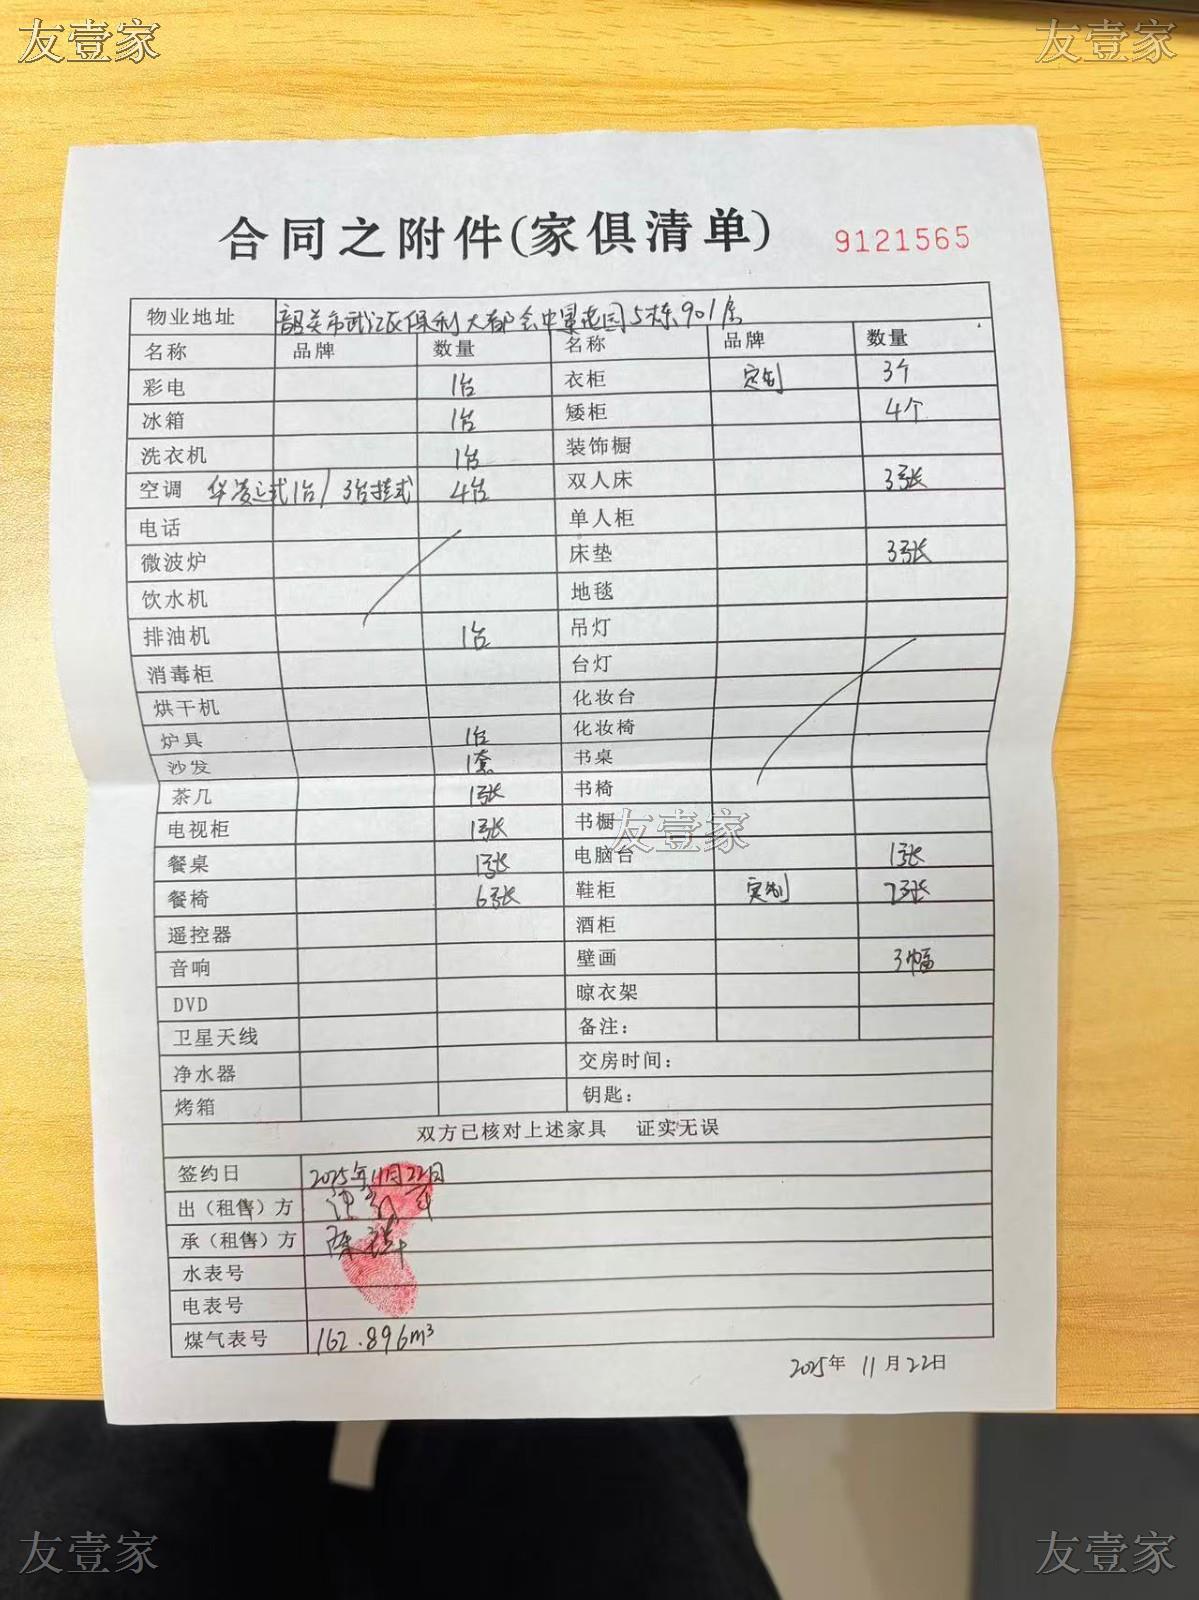 友壹家 友壹家
合同之附件(家俱清单) 9121565
物业地址 韶关市武江区保利大都会中景花园5栋901房
名称 品牌 数量 名称 品牌 数量
彩电 1台 衣柜 定制 3个
冰箱 1台 矮柜 4个
洗衣机 1台 装饰橱
空调 华凌立式1台/3台挂式 4台 双人床 3张
电话 单人柜
微波炉 床垫 3张
饮水机 地毯
排油机 1台 吊灯
消毒柜 台灯
烘干机 化妆台
炉具 1台 化妆椅
沙发 1套 书桌
茶几 1张 书椅
电视柜 1张 书橱
友壹家
餐桌 1张 电脑台 1张
餐椅 6张 鞋柜 定制 2张
遥控器 酒柜
音响 壁画 3幅
DVD 晾衣架
卫星天线 备注:
净水器 交房时间:
烤箱 钥匙:
双方已核对上述家具 证实无误
签约日 2025年11月22日
出（租售）方
承（租售）方
水表号
电表号
煤气表号 162.896m³
2025年 11月22日
友壹家 友壹家